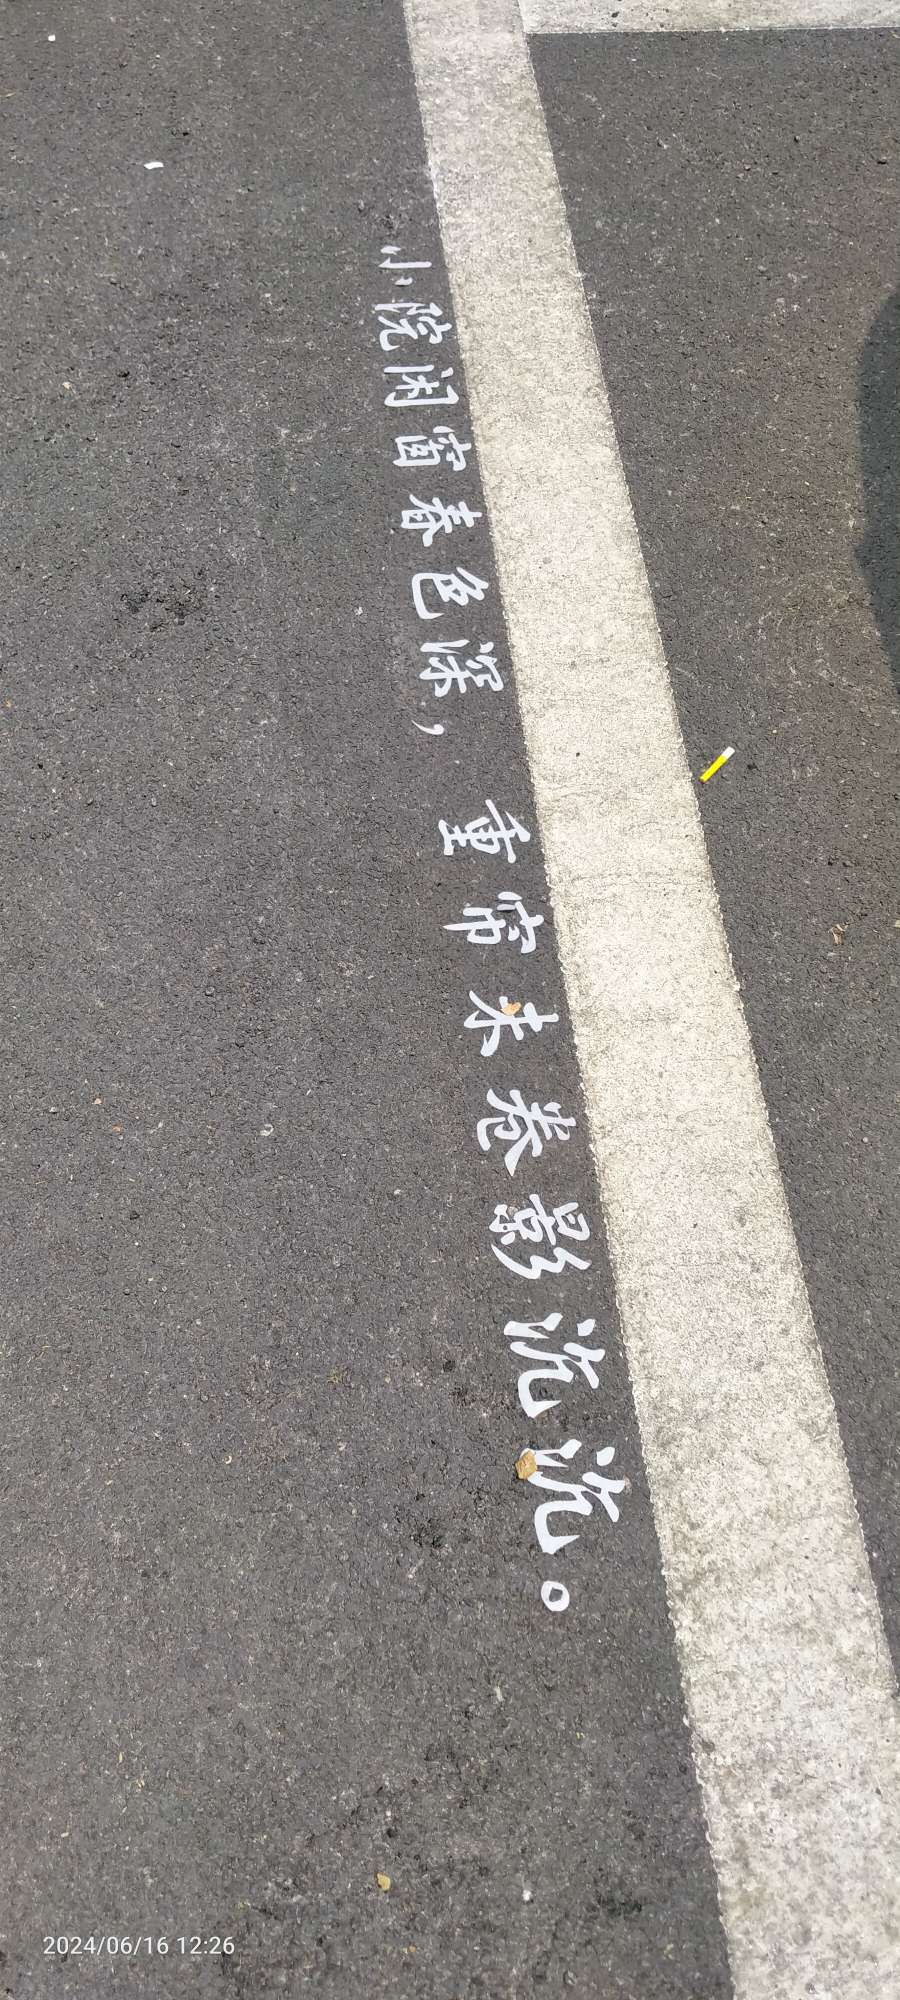 小院闲窗春色深，重帘未卷影沉沉。
2024/06/16 12:26